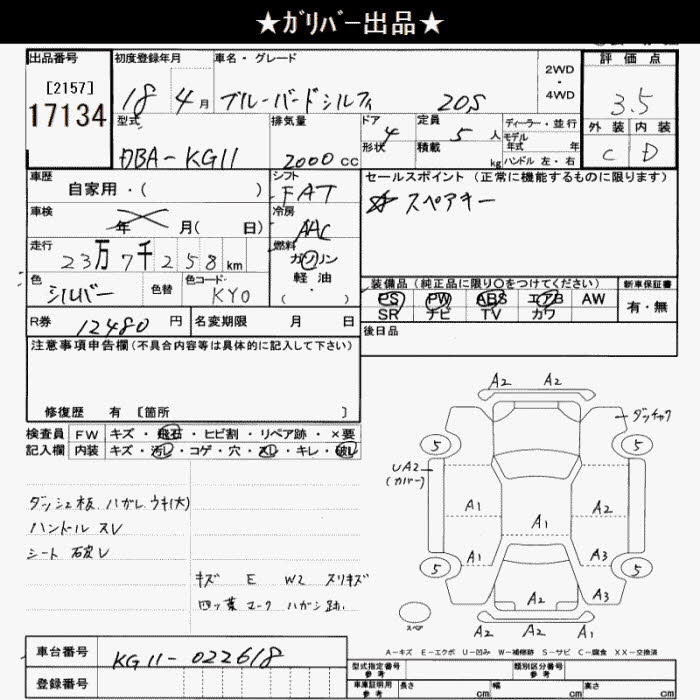 ★ｶﾞﾘﾊﾞｰ出品★
出品番号
[2157]
17134
初度登録年月
18年 4月
車名・グレード
ブルーバードシルフィ 20S
2WD
・
4WD
評価点
3.5
外装 内装
C D
型式
DBA-KG11
排気量
2000 CC
ドア 4
形状
定員 5人
積載 kg
ディーラー・並行
モデル
年式 年
ハンドル 左・右
車歴
自家用・( )
シフト
FAT
セールスポイント(正常に機能するものに限ります)
☆ スペアキー
車検
年 月( 日)
冷房
AAC
走行
23万7千258km
燃料
ガソリン
軽油
( ・ )
色
シルバー
色替
色コード
KY0
装備品(純正品に限り○をつけてください)
PS PW ABS エアB AW
SR ナビ TV カワ
新車保証書
有・無
R券 12480円
名変期限 月 日
後日品
注意事項申告欄(不具合内容等は具体的に記入して下さい)
修復歴 有 [箇所 ]
検査員 FW キズ・飛石・ヒビ割・リペア跡・×要
記入欄 内装 キズ・汚レ・コゲ・穴・スレ・キレ・破レ
ダッシュ板 ハガレ ウキ(大)
ハンドル スレ
シート 破レ
キズ E W2 スリキズ
四ッ葉マーク ハガシ跡
A2 A2
ダッチャク
5 5
UA2
(カバー)
A1 A2
A1
A1 A3
5 5
A2 A3
スペア
A2 A2 A1
A-キズ E-エクボ U-凹み W-補修跡 S-サビ C-腐食 XX-交換済
車台番号 KG11-022618
登録番号
型式指定番号
参考
類別区分番号
参考
車庫証明用
参考
長さ cm 幅 cm 高さ cm